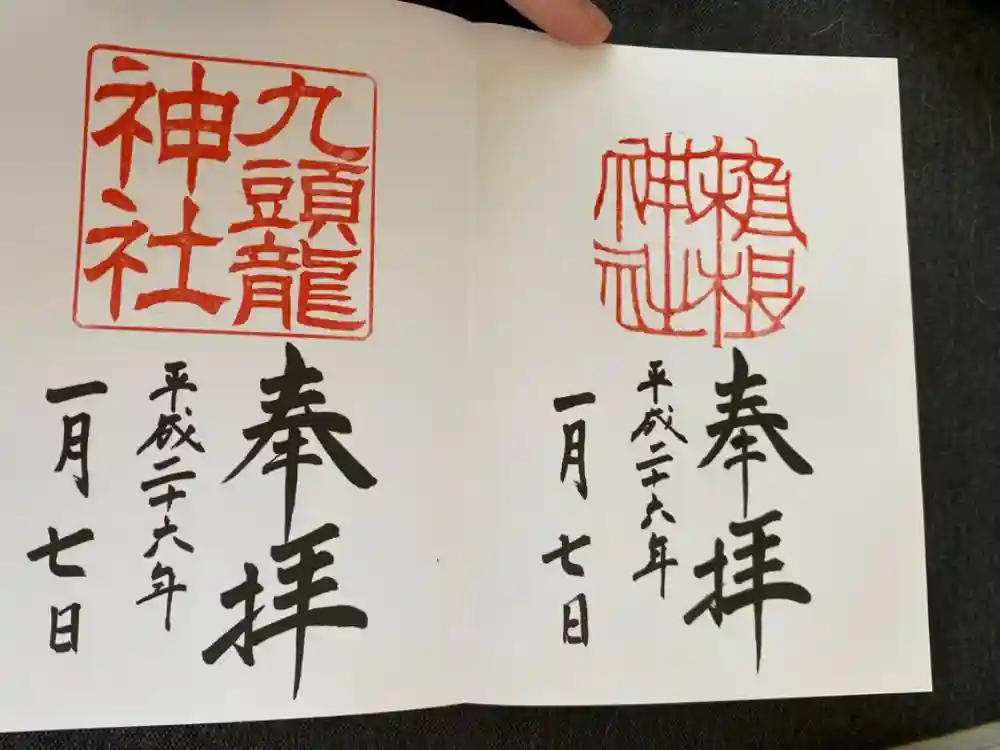 箱根
神社
奉拝
平成二十六年
一月七日
九頭龍
神社
奉拝
平成二十六年
一月七日